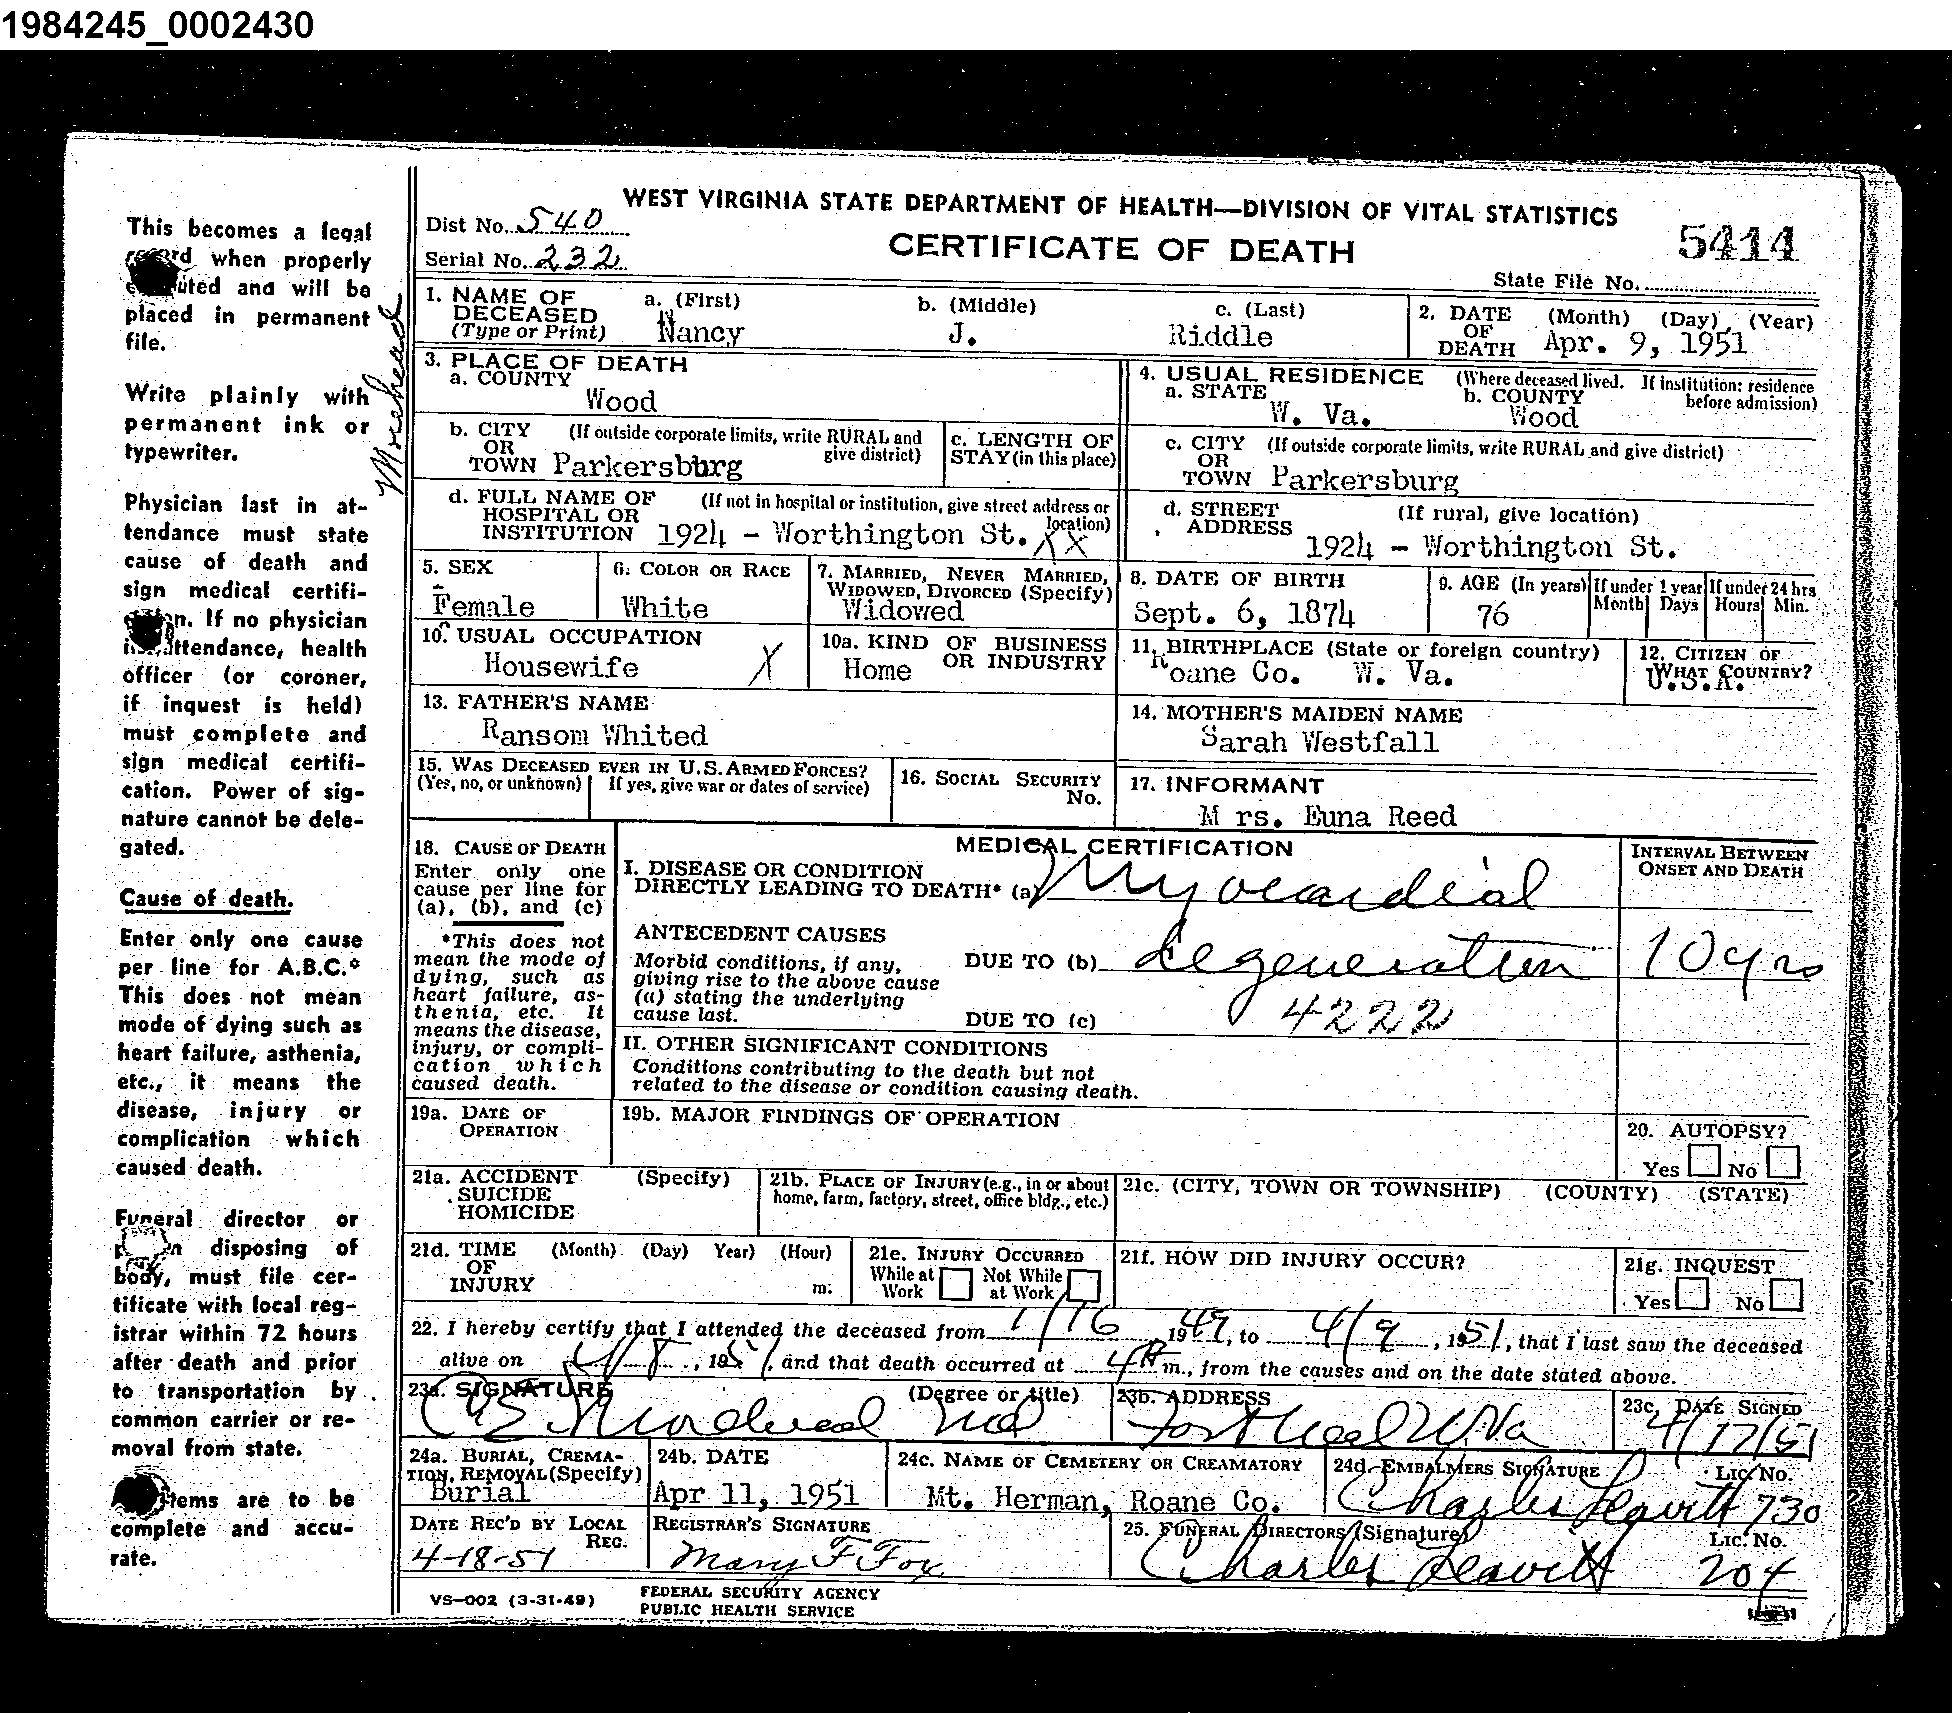 1984245_0002430
This becomes a legal
when properly
and will be
placed in permanent
file.
Write plainly with
permanent ink or
typewriter.
Physician last in at-
tendance must state
cause of death and
sign medical certifi-
If no physician
attendance, health
officer (or coroner,
if inquest is held)
must complete and
sign medical certifi-
cation. Power of sig-
nature cannot be dele-
gated.
Cause of death.
Enter only one cause
per line for A.B.C.*
This does not mean
mode of dying such as
heart failure, asthenia,
etc., it means the
disease, injury or
complication which
caused death.
Funeral director or
disposing of
body, must file cer-
tificate with local reg-
istrar within 72 hours
after death and prior
to transportation by
common carrier or re-
moval from state.
Items are to be
complete and accu-
rate.
Morehead
WEST VIRGINIA STATE DEPARTMENT OF HEALTH—DIVISION OF VITAL STATISTICS
Dist No. 540
CERTIFICATE OF DEATH
5414
Serial No. 232
State File No.
1. NAME OF DECEASED (Type or Print) a. (First) b. (Middle) c. (Last)
Nancy J. Riddle
2. DATE OF DEATH (Month) (Day) (Year)
Apr. 9, 1951
3. PLACE OF DEATH
a. COUNTY
Wood
4. USUAL RESIDENCE (Where deceased lived. If institution: residence before admission)
a. STATE W. Va. b. COUNTY Wood
b. CITY OR TOWN (If outside corporate limits, write RURAL and give district)
Parkersburg
c. LENGTH OF STAY (in this place)
c. CITY OR TOWN (If outside corporate limits, write RURAL and give district)
Parkersburg
d. FULL NAME OF HOSPITAL OR INSTITUTION (If not in hospital or institution, give street address or location)
1924 - Worthington St. XX
d. STREET ADDRESS (If rural, give location)
1924 - Worthington St.
5. SEX
Female
6. COLOR OR RACE
White
7. MARRIED, NEVER MARRIED, WIDOWED, DIVORCED (Specify)
Widowed
8. DATE OF BIRTH
Sept. 6, 1874
9. AGE (In years) If under 1 year Month Days If under 24 hrs Hours Min.
76
10. USUAL OCCUPATION
Housewife X
10a. KIND OF BUSINESS OR INDUSTRY
Home
11. BIRTHPLACE (State or foreign country)
Roane Co. W. Va.
12. CITIZEN OF WHAT COUNTRY?
U.S.A.
13. FATHER'S NAME
Ransom Whited
14. MOTHER'S MAIDEN NAME
Sarah Westfall
15. WAS DECEASED EVER IN U.S. ARMED FORCES?
(Yes, no, or unknown) If yes, give war or dates of service)
16. SOCIAL SECURITY No.
17. INFORMANT
M rs. Euna Reed
18. CAUSE OF DEATH
Enter only one
cause per line for
(a), (b), and (c)
*This does not
mean the mode of
dying, such as
heart failure, as-
thenia, etc. It
means the disease,
injury, or compli-
cation which
caused death.
MEDICAL CERTIFICATION
I. DISEASE OR CONDITION
DIRECTLY LEADING TO DEATH* (a) Myocardial
ANTECEDENT CAUSES
Morbid conditions, if any,
giving rise to the above cause
(a) stating the underlying
cause last.
DUE TO (b) degeneration
DUE TO (c) 4222
INTERVAL BETWEEN
ONSET AND DEATH
10 yrs
II. OTHER SIGNIFICANT CONDITIONS
Conditions contributing to the death but not
related to the disease or condition causing death.
19a. DATE OF OPERATION
19b. MAJOR FINDINGS OF OPERATION
20. AUTOPSY?
Yes No
21a. ACCIDENT SUICIDE HOMICIDE (Specify)
21b. PLACE OF INJURY (e.g., in or about
home, farm, factory, street, office bldg., etc.)
21c. (CITY, TOWN OR TOWNSHIP) (COUNTY) (STATE)
21d. TIME OF INJURY (Month) (Day) Year) (Hour) m.
21e. INJURY OCCURRED
While at Work Not While at Work
21f. HOW DID INJURY OCCUR?
21g. INQUEST
Yes No
22. I hereby certify that I attended the deceased from 1/16, 1949, to 4/9, 1951, that I last saw the deceased
alive on 4/8, 1951, and that death occurred at 4 A m., from the causes and on the date stated above.
23a. SIGNATURE (Degree or title)
Md
23b. ADDRESS
W.Va
23c. DATE SIGNED
4/17/51
24a. BURIAL, CREMA-
TION, REMOVAL (Specify)
Burial
24b. DATE
Apr 11, 1951
24c. NAME OF CEMETERY OR CREAMATORY
Mt. Herman, Roane Co.
24d. EMBALMERS SIGNATURE Lic. No.
Charles Leavitt 730
DATE REC'D BY LOCAL REG.
4-18-51
REGISTRAR'S SIGNATURE
Mary F Fox
25. FUNERAL DIRECTORS (Signature) Lic. No.
Charles Leavitt 204
VS-002 (3-31-49)
FEDERAL SECURITY AGENCY
PUBLIC HEALTH SERVICE